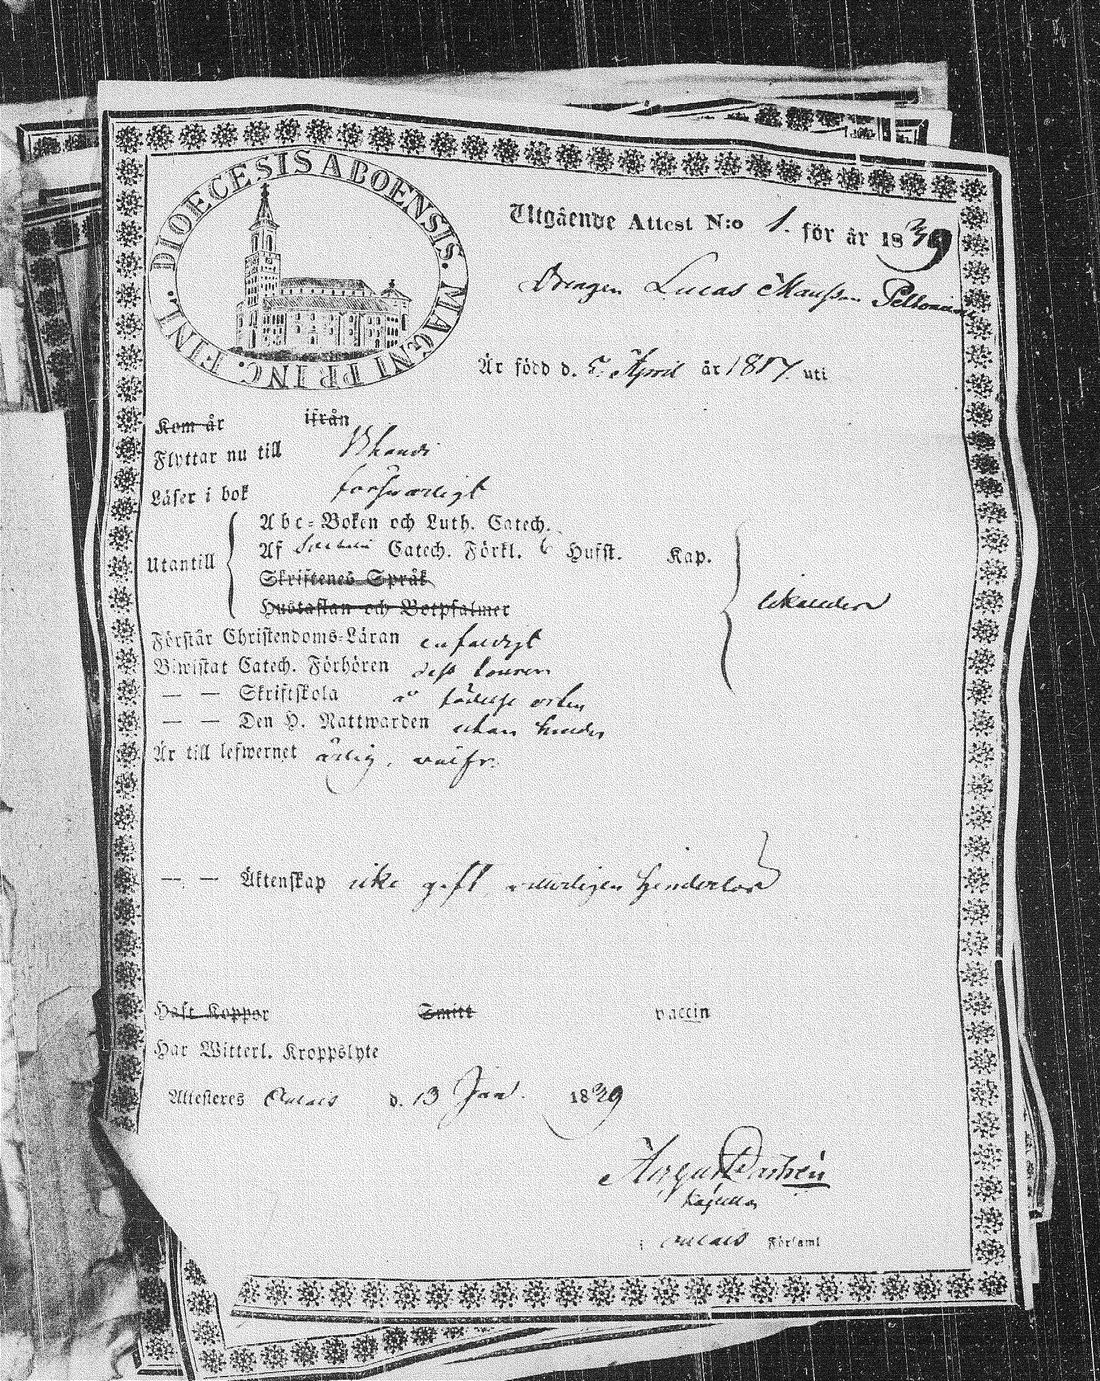 DIOECESIS ABOENSIS. MAGNI PRINC. FINL.
Utgående Attest N:o 1. för år 1839
Drengen Lucas
Är född d. 5 April år 1817. uti
Kom år ifrån
Flyttar nu till
Läser i bok försvarligt
Abc-Boken och Luth. Catech.
Utantill
Af Catech. Förkl. 6 Hufst. Kap.
Skriftenes Språk
Hustaflan och Botpsalmer
Förstår Christendoms-Läran enfaldigt
Biwistat Catech. Förhören
— — Skriftskola å födelse orten
— — Den H. Nattwarden utan hinder
Är till lefwernet ärlig, välfr.
— — Äktenskap icke gift, hinderlös
Haft Koppor Smitt vaccin
Har Witterl. Kroppslyte
Attesteres Oulais d. 13 Jan. 1839
i Oulais Församl